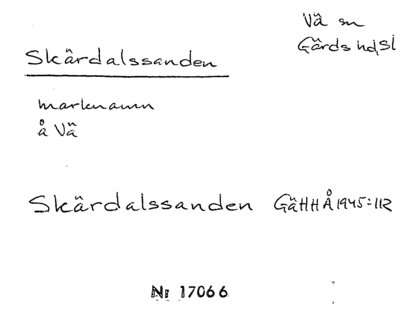 Vä sn
Gärds hd Sl
Skärdalssanden
marknamn
å Vä
Skärdalssanden GäHHÅ 1945:112
Nr 17066